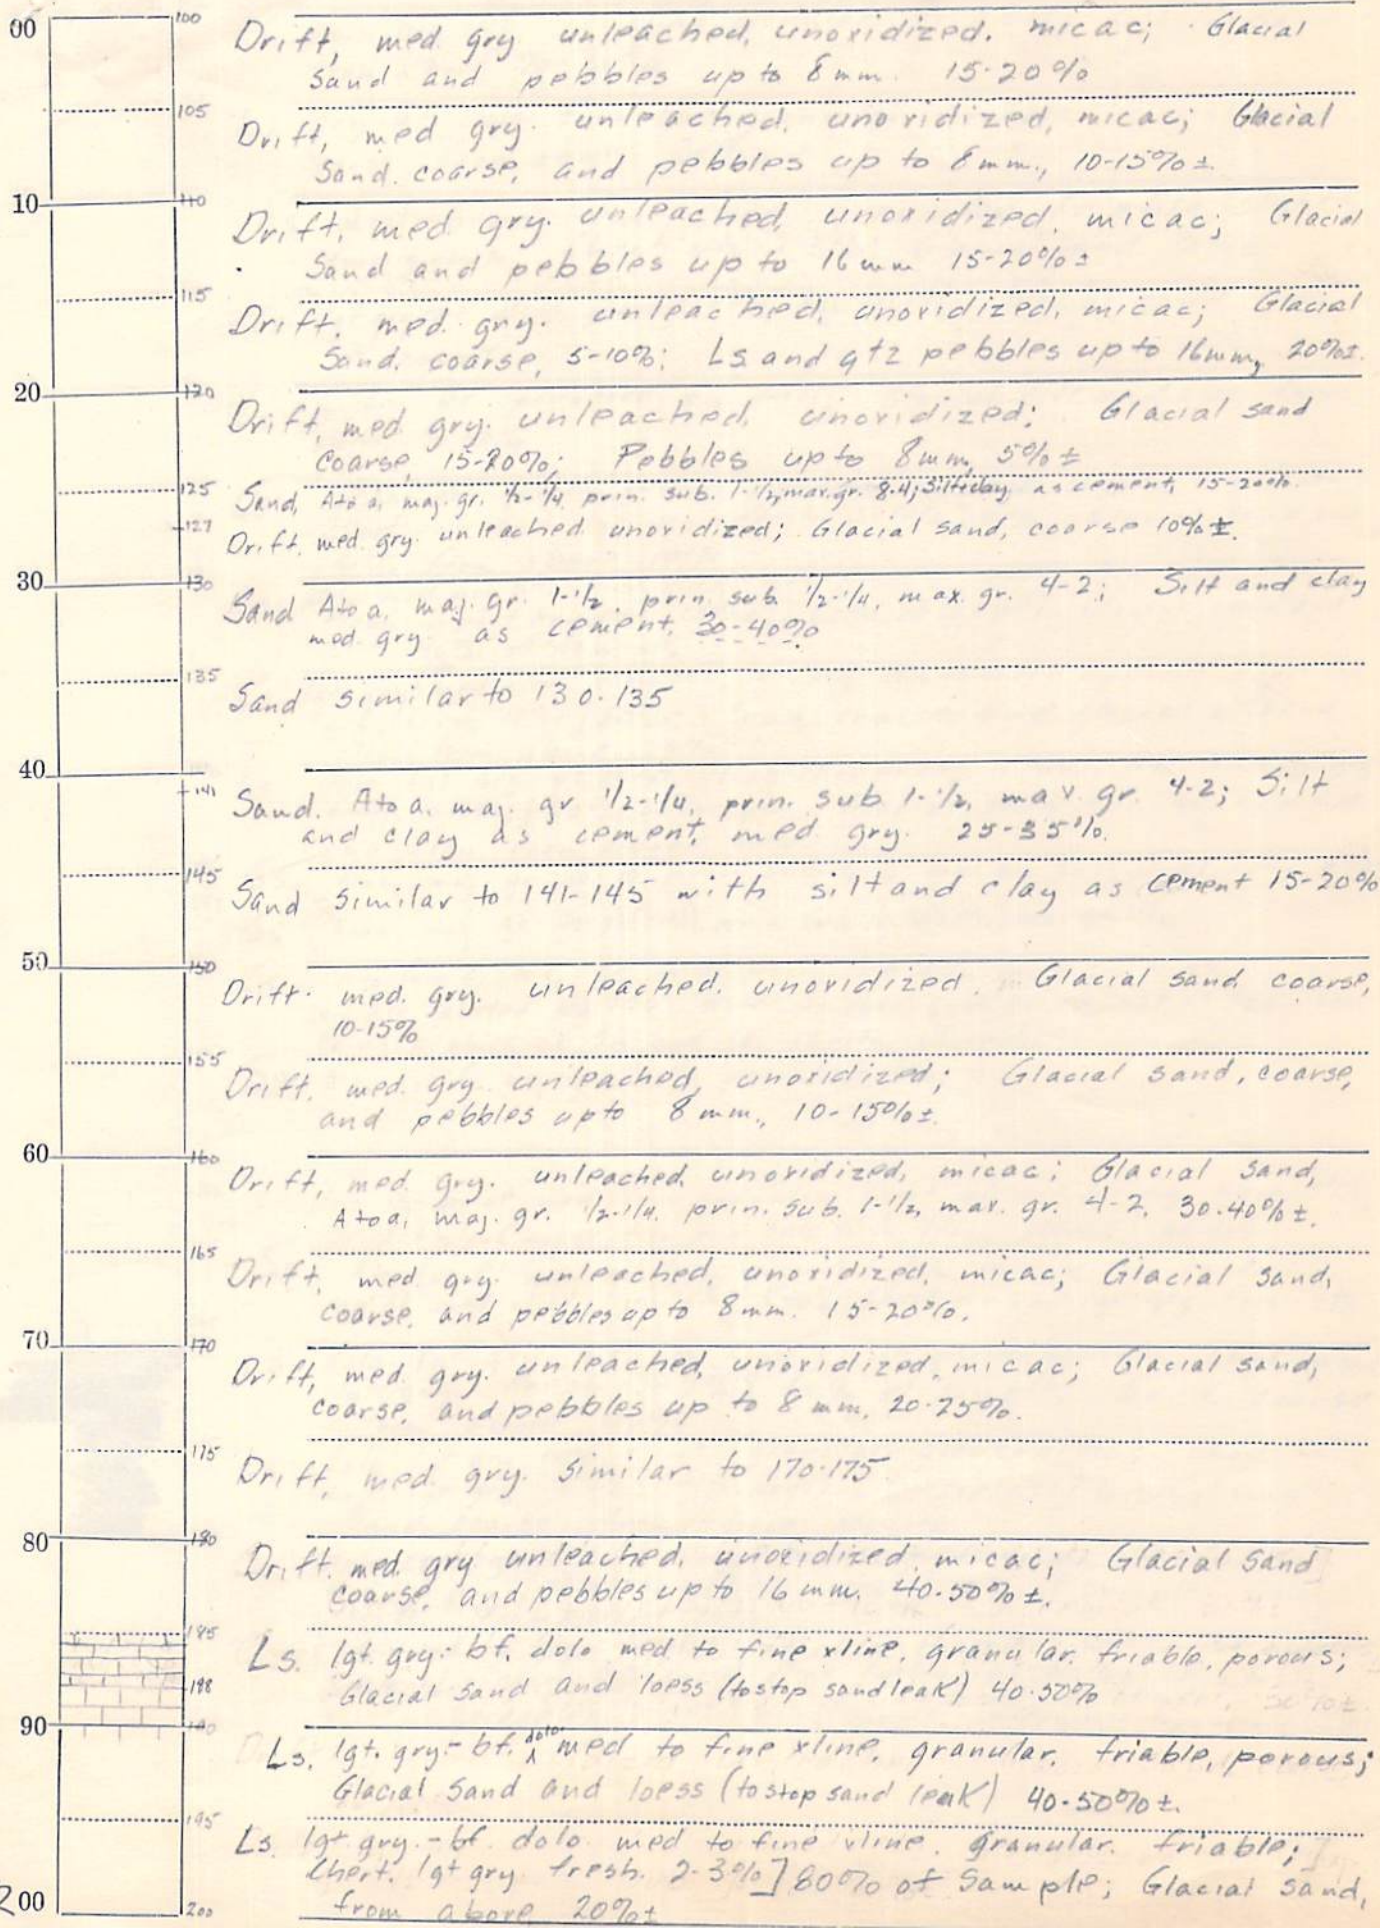 00 100 Drift, med. gry unleached, unoxidized. micac; Glacial
Sand and pebbles up to 8mm. 15-20%
105 Drift, med gry. unleached, unoxidized, micac; Glacial
Sand. coarse, and pebbles up to 8mm., 10-15% ±.
10 110 Drift, med. gry. unleached, unoxidized, micac; Glacial
Sand and pebbles up to 16mm 15-20% ±
115 Drift, med. gry. unleached, unoxidized, micac; Glacial
Sand. coarse, 5-10%; Ls and qtz pebbles up to 16mm, 20%±.
20 120 Drift, med. gry. unleached, unoxidized; Glacial sand
coarse, 15-20%; Pebbles up to 8mm, 5% ±
125 Sand, A to a, maj. gr. 1/2-1/4, prin. sub. 1-1/2, max. gr. 8-4; Silt+clay as cement, 15-20%.
127 Drift, med. gry. unleached unoxidized; Glacial sand, coarse 10% ±.
30 130 Sand A to a, maj. gr. 1-1/2, prin. sub. 1/2-1/4, max. gr. 4-2; Silt and clay
med. gry. as cement, 30-40%
135 Sand similar to 130-135
40
141 Sand. A to a, maj. gr 1/2-1/4, prin. sub. 1-1/2, max. gr. 4-2; Silt
and clay as cement, med gry. 25-35%.
145 Sand similar to 141-145 with silt and clay as cement 15-20%
50 150 Drift. med. gry. unleached, unoxidized. Glacial sand coarse,
10-15%
155 Drift, med. gry unleached, unoxidized; Glacial sand, coarse,
and pebbles up to 8 mm., 10-15% ±.
60 160 Drift, med. gry. unleached, unoxidized, micac; Glacial sand,
A to a, maj. gr. 1/2-1/4, prin. sub. 1-1/2, max. gr. 4-2, 30-40% ±.
165 Drift, med gry. unleached, unoxidized, micac; Glacial sand,
coarse, and pebbles up to 8mm. 15-20%.
70 170 Drift, med. gry. unleached, unoxidized, micac; Glacial sand,
coarse, and pebbles up to 8 mm, 20-25%.
175 Drift, med. gry. similar to 170-175
80 180 Drift, med. gry unleached, unoxidized, micac; Glacial Sand
coarse, and pebbles up to 16 mm. 40-50% ±.
185 Ls. lgt. gry-bf. dolo med to fine xline, granular, friable, porous;
188 Glacial Sand and loess (to stop sand leak) 40-50%
90 190 Ls. lgt. gry-bf. dolo. med to fine xline, granular, friable, porous;
Glacial Sand and loess (to stop sand leak) 40-50% ±.
195 Ls. lgt gry.-bf. dolo med to fine xline, granular. friable;
Chert. lgt gry fresh. 2-3%] 80% of Sample; Glacial Sand,
200 200 from above 20% ±